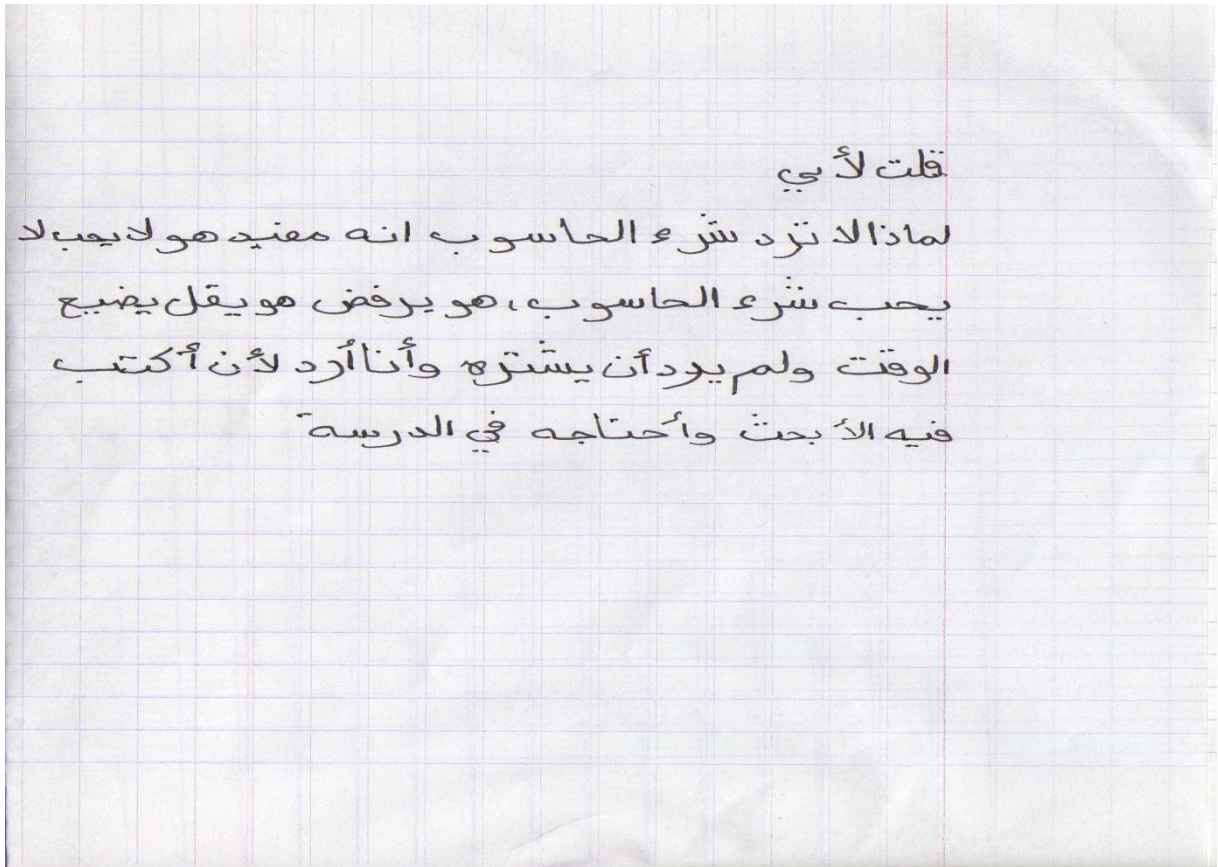 قلت لأبي
لماذا لا ترد شرء الحاسوب انه مفيد هو لا يحب لا
يحب شرء الحاسوب، هو يرفض هو يقل يضيع
الوقت ولم يرد أن يشتره وأنا أرد لأن أكتب
فيه الأبحث وأحتاجه في الدرسة